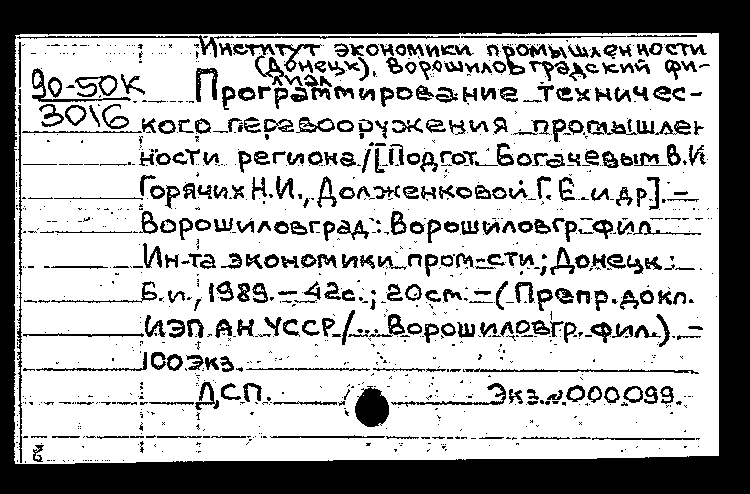 Институт экономики промышленности
(Донецк), Ворошиловградский фи-
лиал
90-50К
3016
Программирование техничес-
кого перевооружения промышлен
ности региона/[Подгот. Богачевым В.И
Горячих Н.И., Долженковой Г.Е. и др]. –
Ворошиловград: Ворошиловгр. фил.
Ин-та экономики пром-сти; Донецк:
Б.и., 1989. – 42с.; 20см. – (Препр. докл.
ИЭП АН УССР/... Ворошиловгр. фил.). –
100экз.
ДСП. Экз. № 000099.